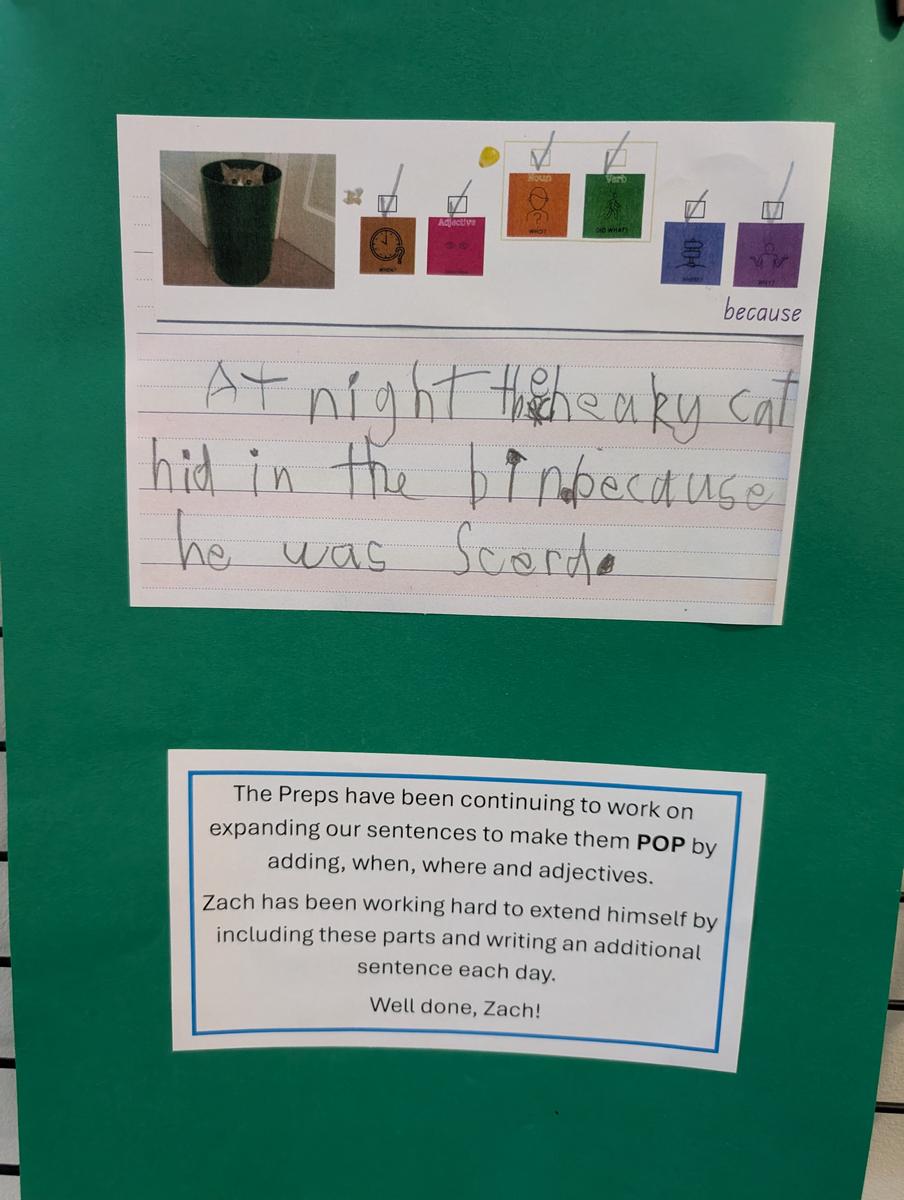 Noun
Verb
Adjective
WHEN?
WHO?
DID WHAT?
WHERE?
WHY?
because
At night the cheaky cat
hid in the bin because
he was Scerd.
The Preps have been continuing to work on
expanding our sentences to make them POP by
adding, when, where and adjectives.
Zach has been working hard to extend himself by
including these parts and writing an additional
sentence each day.
Well done, Zach!